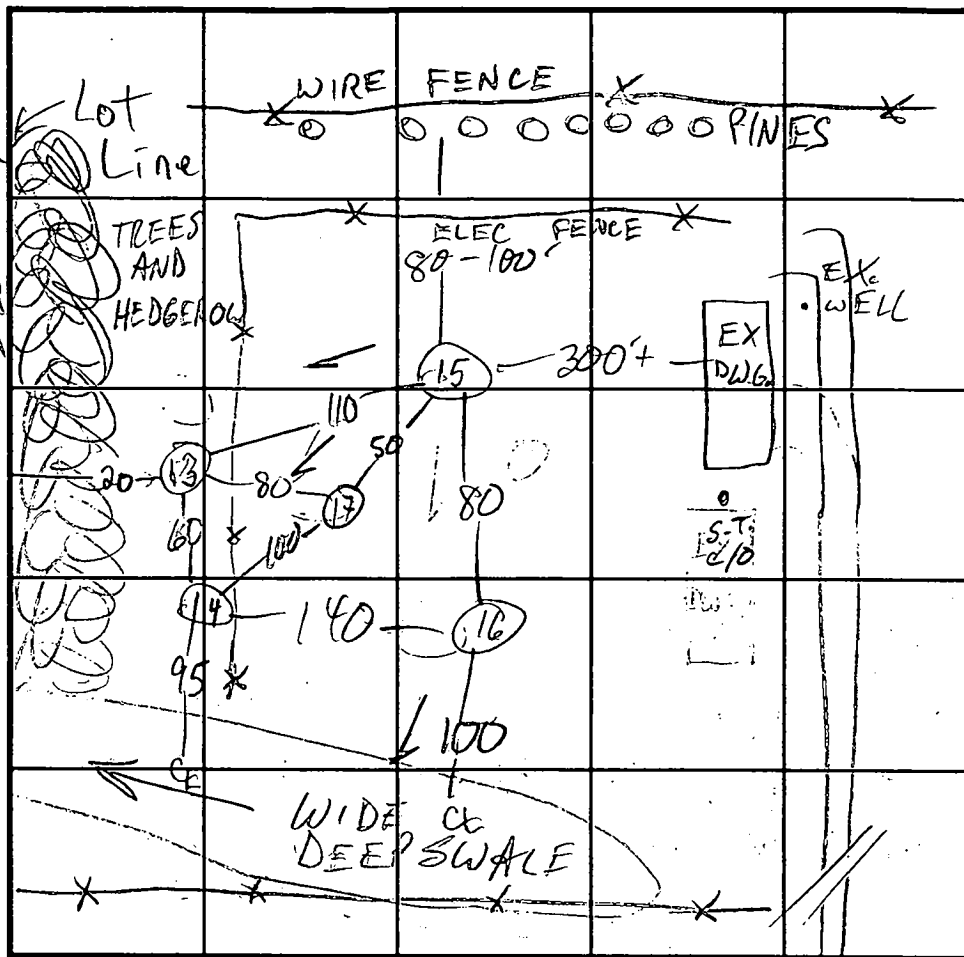 WIRE FENCE
Lot
Line
PINES
TREES
AND
HEDGEROW
ELEC FENCE
80-100'
EX.
WELL
EX
DWG.
15
300'+
110
50
13
20
80
17
80
60
100
S.T.
C/O
14
140
16
95
100
CL
WIDE CL
DEEP SWALE